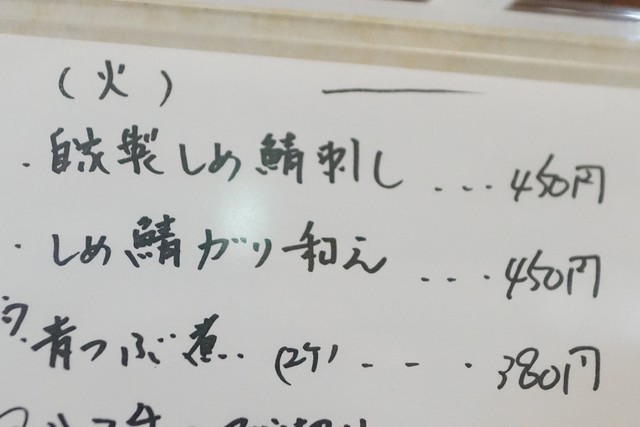 (火)
・自家製しめ鯖刺し ... 450円
・しめ鯖ガリ和え ... 450円
・青つぶ煮 (2ケ) - - ・ 380円